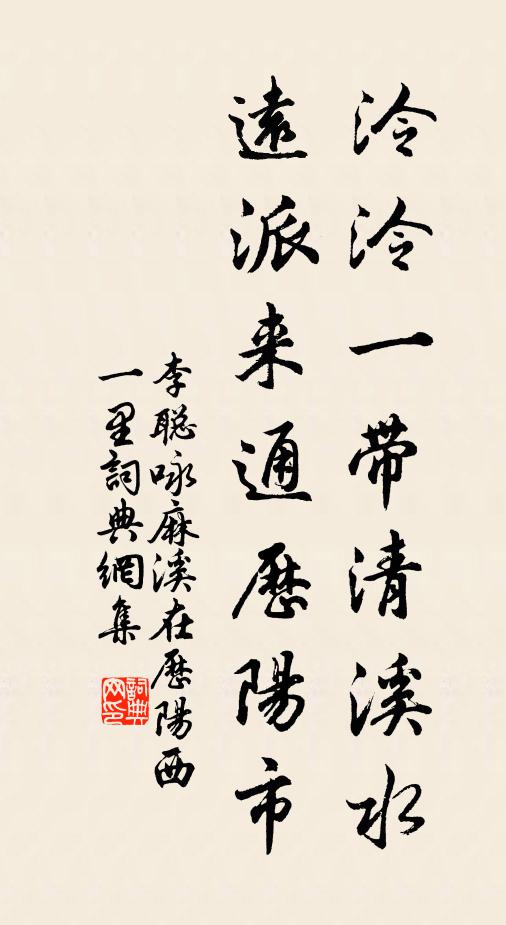 泠泠一带清溪水
遠派来通歷陽市
李聪咏麻溪在歷陽西
一里詞典網集
詞典
网印